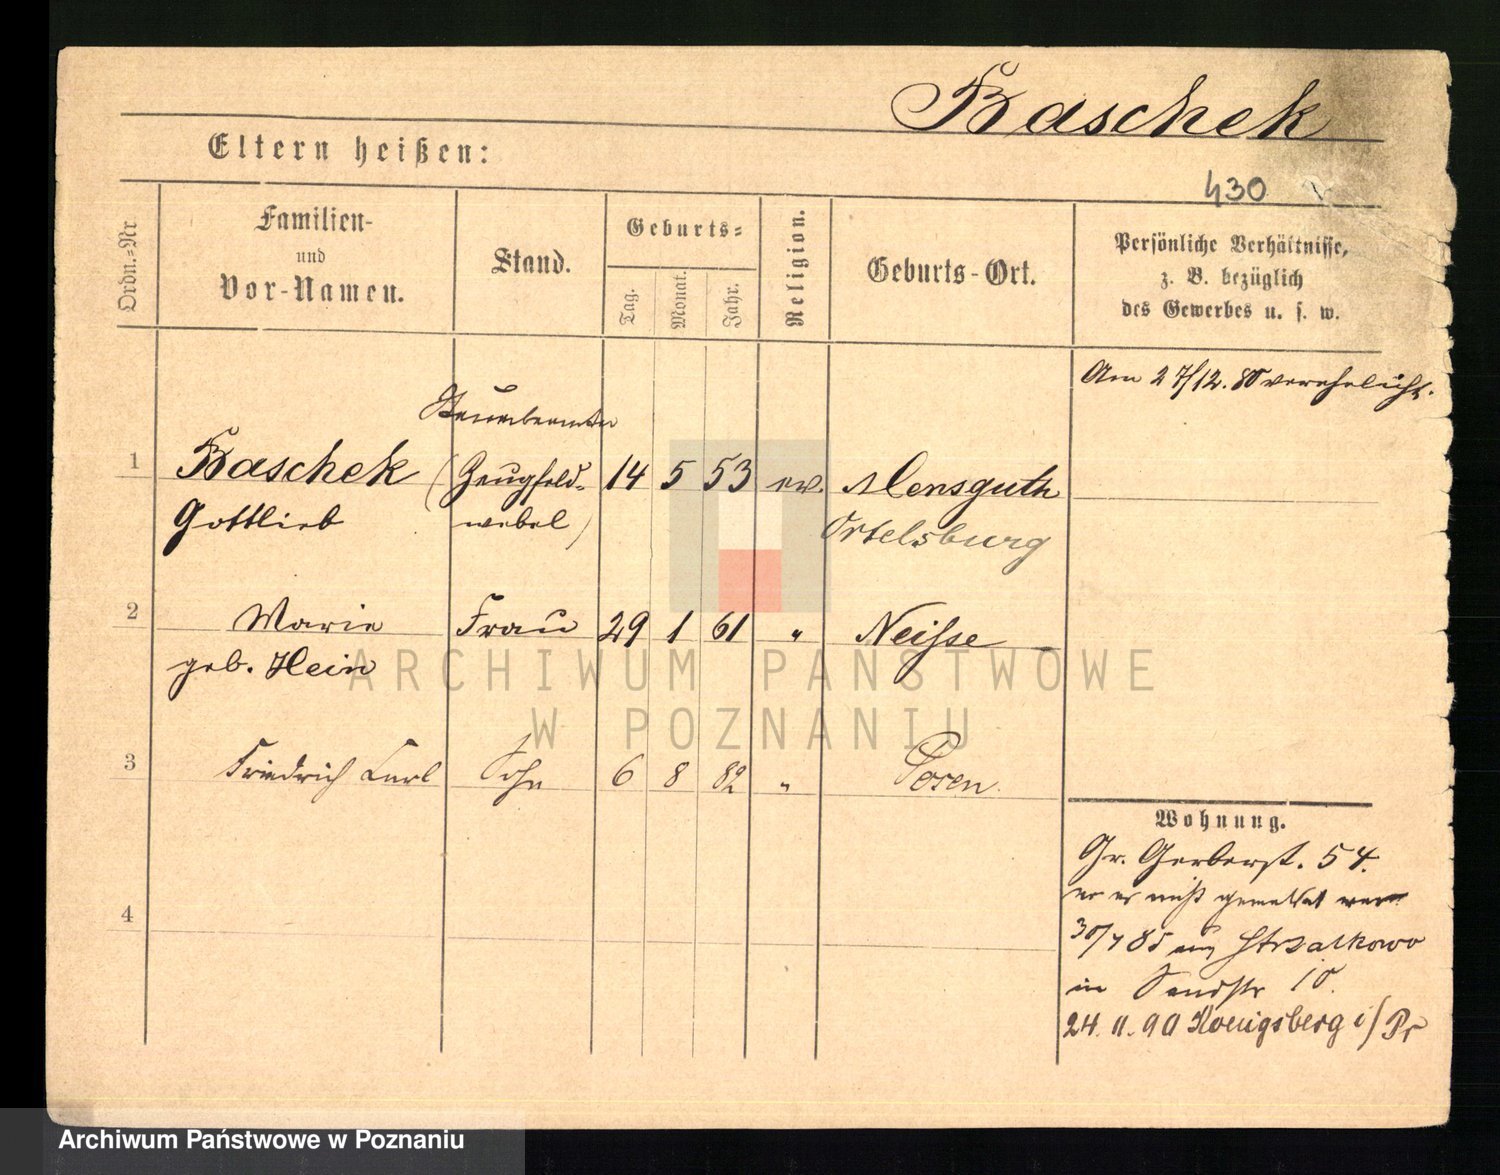 Baschek
Eltern heißen:
430
Ordn.-Nr
Familien-
und
Vor-Namen.
Stand.
Geburts-
Tag.
Monat.
Jahr.
Religion.
Geburts-Ort.
Persönliche Verhältnisse,
z. B. bezüglich
des Gewerbes u. s. w.
Am 27/12. 80 verehelicht.
Steuerbeamter
1 Baschek (Zeugfeld- 14 5 53 ev. Mensguth
Gottlieb webel) Ortelsburg
2 Marie Frau 29 1 61 " Neisse
geb. Hein
3 Friedrich Carl Sohn 6 8 82 " Posen
4
Wohnung.
Gr. Gerberst. 54.
er nicht gemeldet war
30/4 85 Strzalkowo
in Sandstr 10.
24. 11. 90 Koenigsberg i/Pr
ARCHIWUM PAŃSTWOWE
W POZNANIU
Archiwum Państwowe w Poznaniu